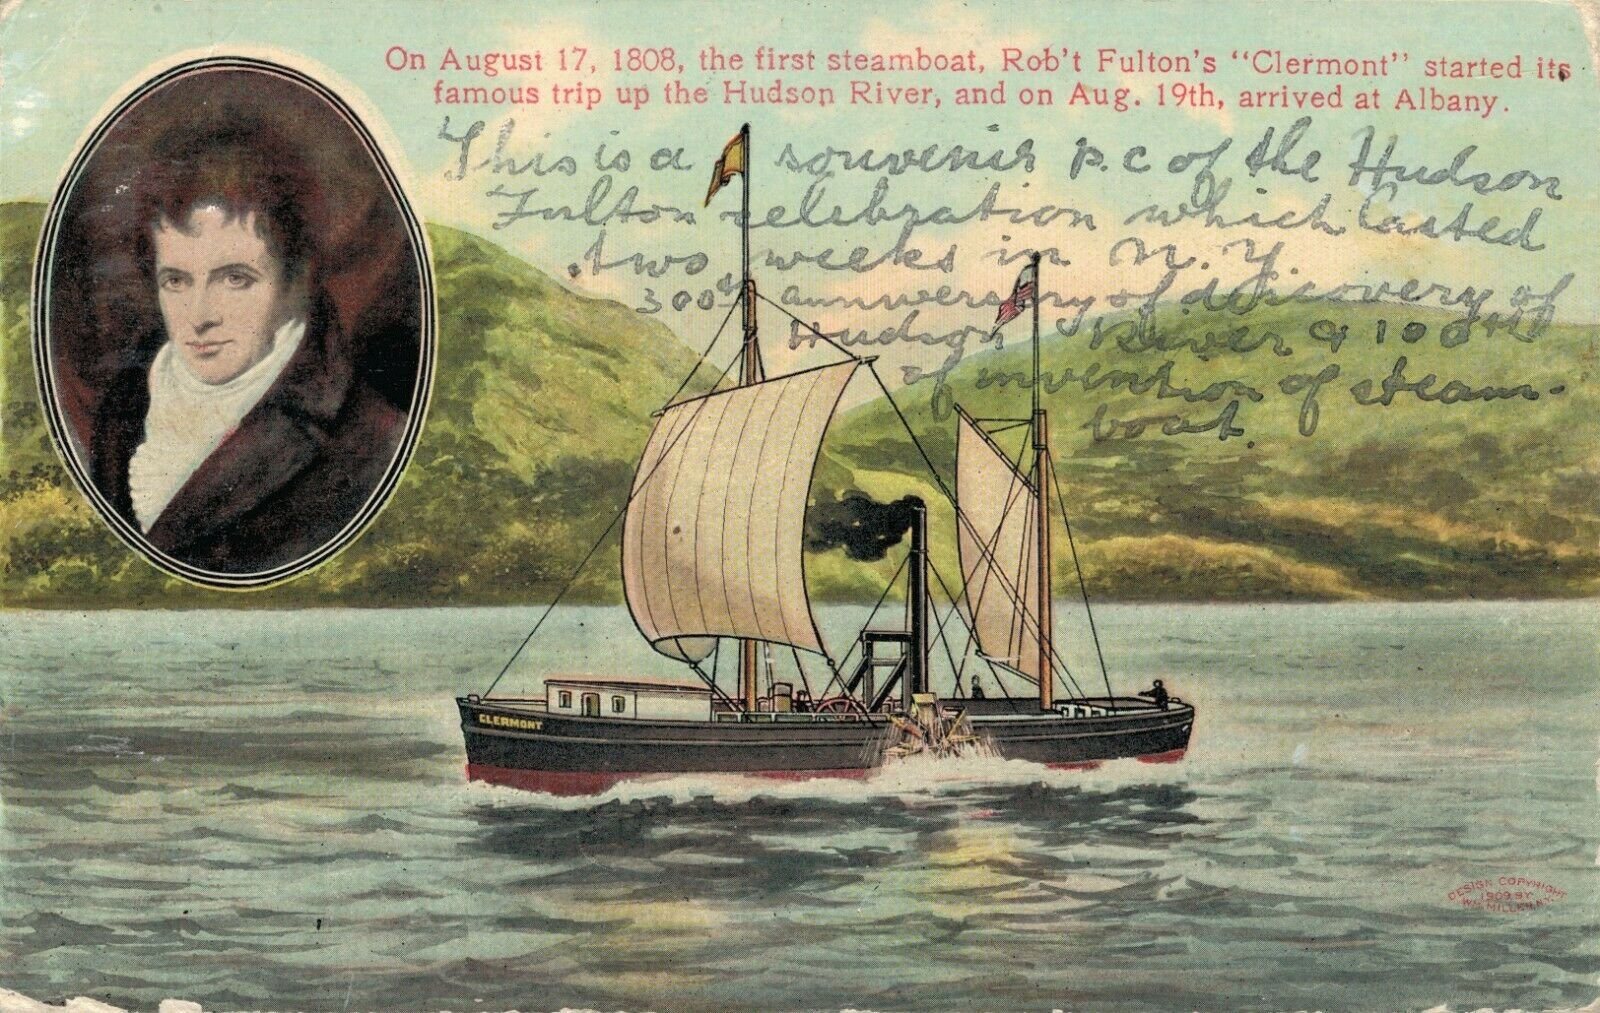 On August 17, 1808, the first steamboat, Rob't Fulton's "Clermont" started its
famous trip up the Hudson River, and on Aug. 19th, arrived at Albany.
This is a souvenir p.c of the Hudson
Fulton celebration which lasted
two weeks in N.Y.
300th anniversary of discovery of
Hudson River & 100th
of invention of steam-
boat.
CLERMONT
DESIGN COPYRIGHT
1909 BY
WM. MILLER, N.Y.